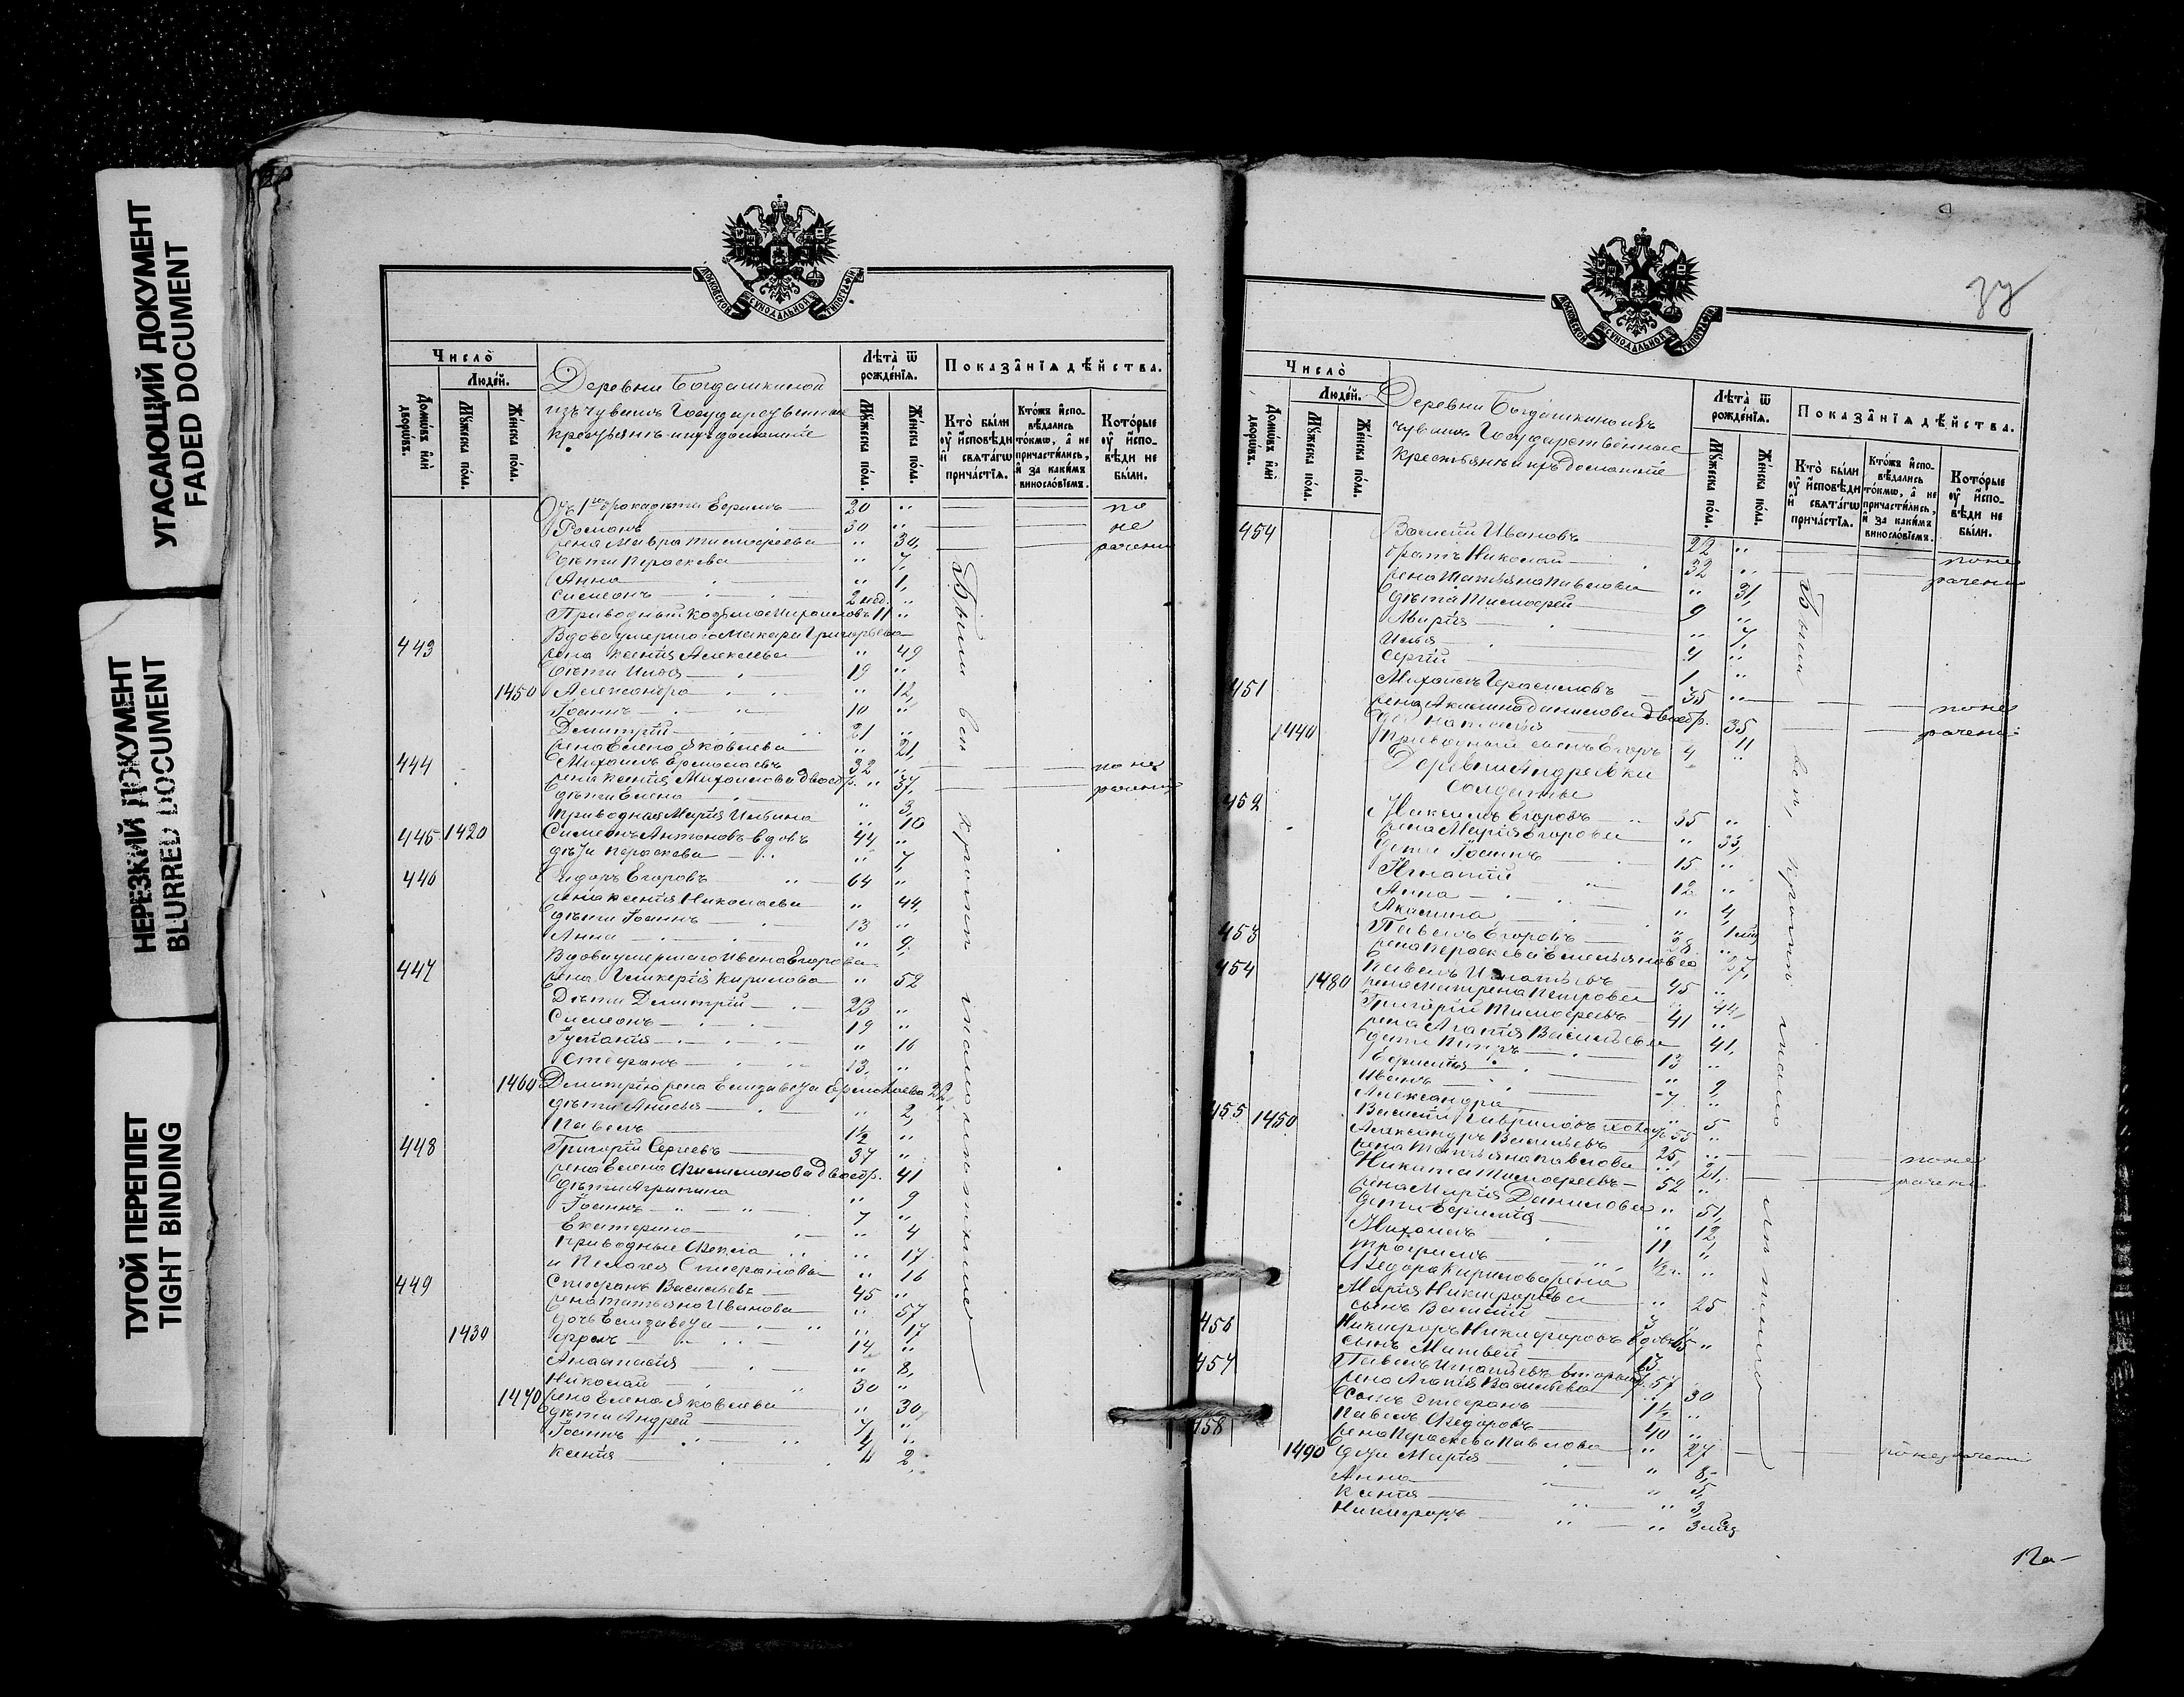 УГАСАЮЩИЙ ДОКУМЕНТ
FADED DOCUMENT
НЕРЕЗКИЙ ДОКУМЕНТ
BLURRED DOCUMENT
ТУГОЙ ПЕРЕПЛЕТ
TIGHT BINDING
МОСКОВСКОЙ СѴНОДАЛЬНОЙ ТИПОГРАФІИ
Число
Людей.
Домовъ или дворовъ.
Мужеска пола.
Женска пола.
Деревни Богдашкиной
изъ чувашъ Государственные
крестьяне и ихъ домашніе
Лѣта ѿ рожденія.
Мужеска пола.
Женска пола.
Показанія дѣйства.
Кто были у исповѣди и святагѡ причастія.
Ктожъ исповѣдались токмѡ, а не причастились, и за какимъ винословіемъ.
Которые у исповѣди не были.
Отъ 1го брака дѣти Ефремъ 20 " по
Романъ 30 " не
жена Мавра Тимофеева " 30, рачению
дѣти Параскева " 7,
Анна " 1,
Симеонъ 2 нед. "
Приводный Козьма Михаиловъ 11 "
Вдова умершаго Макара Григорьева
443 жена Ксенія Алексеева " 49
дѣти Илья 19 "
1450 Александра " 12,
Іоаннъ 10 "
Димитрій 21 "
жена Елена Яковлева " 21,
444 Михаилъ Ермолаевъ 32 " по не
жена Ксенія Михаилова 2 бр. " 37, рачению
дѣти Елена " 3,
Приводная Марія Ильина " 10
445 1420 Симеонъ Антоновъ вдовъ 44 "
дѣти Параскева " 7
446 Сидоръ Егоровъ 64 "
жена Ксенія Николаева " 44,
дѣти Іоаннъ 13 "
Анна " 9
Вдова умершаго Ивана Егорова
447 жена Гликерія Кирилова " 52
Дѣти Димитрій 23 "
Симеонъ 19 "
Іустинія " 16
Стефанъ 13, "
1460 Димитрія жена Елизавета Ермолаева 22
дѣти Анисья " 2,
Павелъ 1½ "
448 Григорій Сергеевъ 37 "
жена Елена Филимонова 2 бр. 41
дѣти Агрипина " 9
Іоаннъ 7 "
Екатерина " 4
Приводные Фекла " 17
и Пелагея Стефановы " 16
449 Стефанъ Васильевъ 45 "
жена Татьяна Иванова " 57
дочь Елизавета " 17
1430 14 "
Анастасія " 8,
Николай 30 "
1470 жена Елена Яковлева " 30,
дѣти Андрей 7 "
Іоаннъ 4 "
Ксенія " 2
Были вси кромѣ малолѣтнихъ
37
МОСКОВСКОЙ СѴНОДАЛЬНОЙ ТИПОГРАФІИ
Число
Людей.
Домовъ или дворовъ.
Мужеска пола.
Женска пола.
Деревни Богдашкино изъ
чувашъ Государственные
крестьяне и ихъ домашніе
Лѣта ѿ рожденія.
Мужеска пола.
Женска пола.
Показанія дѣйства.
Кто были у исповѣди и святагѡ причастія.
Ктожъ исповѣдались токмѡ, а не причастились, и за какимъ винословіемъ.
Которые у исповѣди не были.
454 Василій Ивановъ 22 " по не
братъ Николай 32 " рачению
жена Татьяна Павлова " 31,
дѣти Тимофей 9 "
Марія " 7,
Илья 4 "
Сергій 1 "
451 Михаилъ Герасимовъ 35 " по не
жена Акилина Данилова 2 бр. 35 рачению
1440 дѣт Наталья " 11
Приводный сынъ Егоръ 4 "
Деревни Андреевки
солдаты
452 Максимъ Егоровъ 35 "
жена Марія Егорова " 33,
дѣти Іоаннъ 15 "
Игнатій 12 "
Анна " 4,
Акилина " 1 мѣс
453 Павелъ Егоровъ 28 "
жена Параскева Емельянова " 27,
454 Павелъ Игнатьевъ 45 "
1480 жена Матрена Петрова " 44,
Григорій Тимофеевъ 41 "
жена Агапія Васильева " 41,
дѣти Петръ 13 "
Ефимія " 9,
Иванъ 7 "
Александра " 5
455 1450 Василій Гавриловъ 55 "
Александръ Васильевъ 25, " по не
жена Татьяна Павлова " 21, рачению
Никита Тимофеевъ 52 "
жена Марія Данилова " 51,
дѣти Ефимія " 12,
Михаилъ 11 "
Трофимъ ½ "
Федора Кирилова жена
Марія Никифорова " 25
сынъ Василій 3 "
456 Никифоръ Никифоровъ вдовъ 65 "
сынъ Матвей 13
457 Павелъ Игнатьевъ вторый 57
жена Агапія Васильева " 30
сынъ Стефанъ 1½ "
458 Павелъ Федоровъ 40 "
жена Параскева Павлова " 27 по нерачению
1490 дѣти Марія " 8,
Анна " 5,
Ксенія " 3,
Никифоръ " 3 мѣс
Были вси, кромѣ малолѣтнихъ
Па-